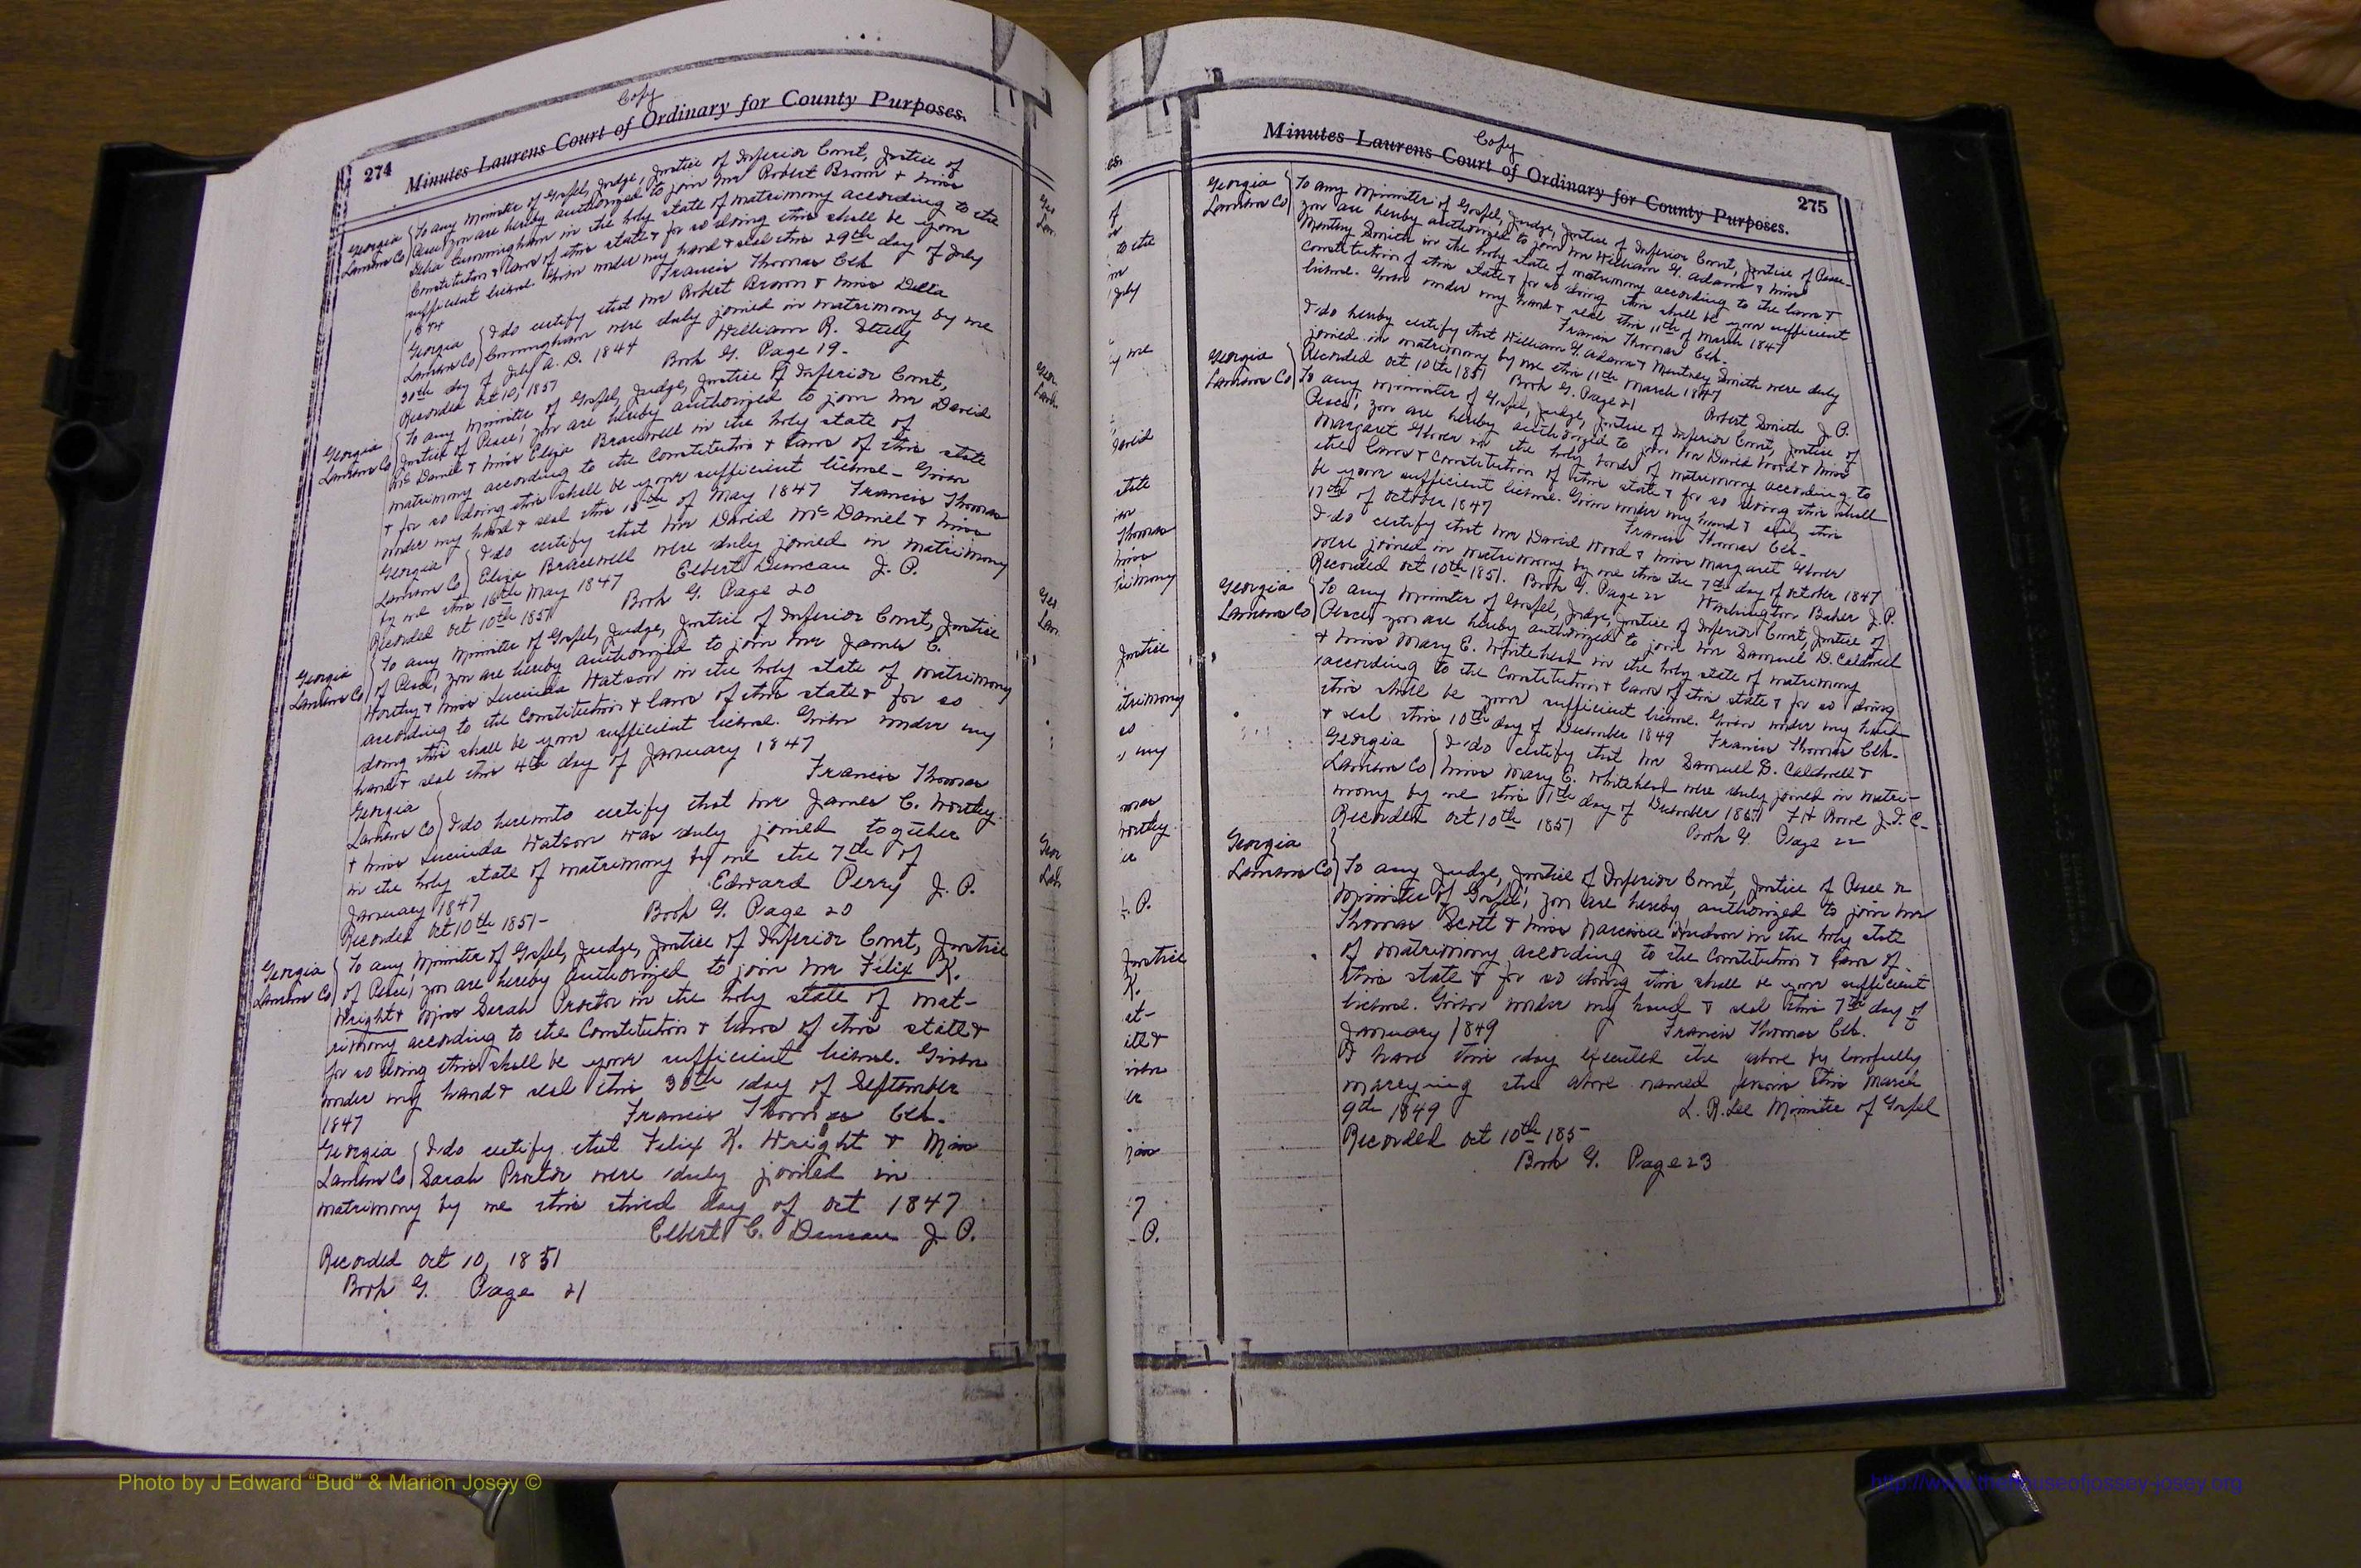 Copy
274 Minutes Laurens Court of Ordinary for County Purposes.
Georgia
Laurens Co
To any Minister of Gospel, Judge, Justice of Inferior Court, Justice of
Peace you are hereby authorized to join Mr Robert Brown & Miss
Delia Cunningham in the holy state of matrimony according to the
Constitution & laws of this state & for so doing this shall be your
sufficient license. Given under my hand & seal this 29th day of July
1844 Francis Thomas Clk
Georgia
Laurens Co
I do certify that Mr Robert Brown & Miss Delia
Cunningham were duly joined in matrimony by me
30th day of July A.D. 1844 William R. Steely
Recorded Oct 10, 1851 Book G. Page 19.
Georgia
Laurens Co
To any Minister of Gospel, Judge, Justice of Inferior Court,
Justice of Peace; you are hereby authorized to join Mr David
Mc Daniel & Miss Eliza Bracewell in the holy state of
matrimony according to the Constitution & laws of this state
& for so doing this shall be your sufficient license - Given
under my hand & seal this 15th of May 1847 Francis Thomas
Georgia
Laurens Co
I do certify that Mr David McDaniel & Miss
Eliza Bracewell were duly joined in matrimony
by me this 16th May 1847 Elbert Duncan J. P.
Recorded Oct 10th 1851 Book G. Page 20
Georgia
Laurens Co
To any Minister of Gospel, Judge, Justice of Inferior Court, Justice
of Peace, you are hereby authorized to join Mr James C.
Worthy & Miss Lucinda Watson in the holy state of matrimony
according to the Constitution & laws of this state & for so
doing this shall be your sufficient license. Given under my
hand & seal this 4th day of January 1847
Francis Thomas
Georgia
Laurens Co
I do hereunto certify that Mr James C. Worthy
& Miss Lucinda Watson was duly joined together
in the holy state of matrimony by me the 7th of
January 1847 Edward Perry J. P.
Recorded Oct 10th 1851- Book G. Page 20
Georgia
Laurens Co
To any Minister of Gospel, Judge, Justice of Inferior Court, Justice
of Peace; you are hereby authorized to join Mr Felix K.
Wright & Miss Sarah Proctor in the holy state of mat-
rimony according to the Constitution & laws of this state &
for so doing this shall be your sufficient license. Given
under my hand & seal this 30th day of September
1847 Francis Thomas Clk.
Georgia
Laurens Co
I do certify that Felix K. Wright & Miss
Sarah Proctor were duly joined in
matrimony by me this third day of Oct 1847
Elbert C. Duncan J. P.
Recorded Oct 10, 1851
Book G. Page 21
Copy
Minutes Laurens Court of Ordinary for County Purposes. 275
Georgia
Laurens Co
To any Minister of Gospel, Judge, Justice of Inferior Court, Justice of Peace-
you are hereby authorized to join Mr William G. Adams & Miss
Montney Smith in the holy state of matrimony according to the laws &
constitution of this state & for so doing this shall be your sufficient
license. Given under my hand & seal this 11th of March 1847
Francis Thomas Clk.
I do hereby certify that William G. Adams & Montney Smith were duly
joined in matrimony by me this 11th March 1847
Recorded Oct 10th 1851 Book G. Page 21 Robert Smith J. P.
Georgia
Laurens Co
To any Minister of Gospel, Judge, Justice of Inferior Court, Justice of
Peace; you are hereby authorized to join Mr David Wood & Miss
Margaret Glover in the holy bonds of matrimony according to
the laws & constitution of this state & for so doing this shall
be your sufficient license. Given under my hand & seal, this
17th of October 1847
Francis Thomas Clk-
I do certify that Mr David Wood & Miss Margaret Glover
were joined in matrimony by me this the 7th day of October 1847
Recorded Oct 10th 1851. Book G. Page 22 Washington Baker J. P.
Georgia
Laurens Co
To any Minister of Gospel, Judge, Justice of Inferior Court, Justice of
Peace, you are hereby authorized to join Mr Samuel D. Caldwell
& Miss Mary E. Whitehead in the holy state of matrimony
according to the Constitution & laws of this state & for so doing
this shall be your sufficient license. Given under my hand
& seal this 10th day of December 1849 Francis Thomas Clk-
Georgia
Laurens Co
I do certify that Mr Samuell D. Caldwell &
Miss Mary E. Whitehead were duly joined in matri-
mony by me this 11th day of December 1851
Recorded Oct 10th 1851 Book G. Page 22
Georgia
Laurens Co
To any Judge, Justice of Inferior Court, Justice of Peace or
Minister of Gospel; you are hereby authorized to join Mr
Thomas Scott & Miss Narcissee Hudson in the holy state
of matrimony according to the Constitution & laws of
this state & for so doing this shall be your sufficient
license. Given under my hand & seal this 7th day of
January 1849 Francis Thomas Clk.
I have this day executed the above by lawfully
marrying the above named persons this March
9th 1849 L. R. Lee Minister of Gospel
Recorded Oct 10th 185-
Book G. Page 23
Photo by J Edward “Bud” & Marion Josey ©
http://www.thehouseofjossey-josey.org